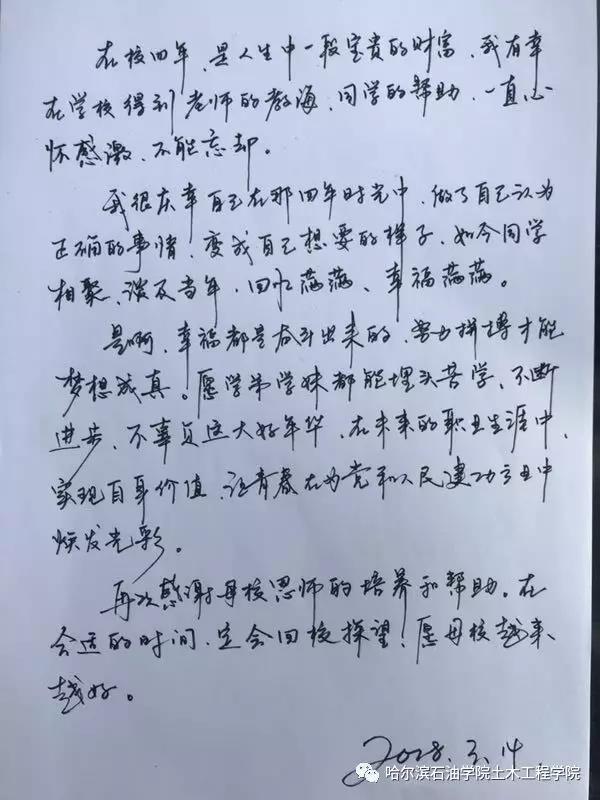 在校四年，是人生中一段宝贵的财富，我有幸
在学校得到老师的教诲，同学的帮助，一直心
怀感激，不能忘却。
我很庆幸自己在那四年时光中，做了自己认为
正确的事情，变成自己想要的样子，如今同学
相聚，谈及当年，回忆满满、幸福满满。
是啊，幸福都是奋斗出来的，努力拼搏才能
梦想成真。愿学弟学妹都能埋头苦学，不断
进步，不辜负这大好年华，在未来的职业生涯中，
实现自身价值，让青春在为党和人民建功立业中
焕发光彩。
再次感谢母校恩师的培养和帮助。在
合适的时间，定会回校探望！愿母校越来
越好。
2018.3.14
哈尔滨石油学院土木工程学院